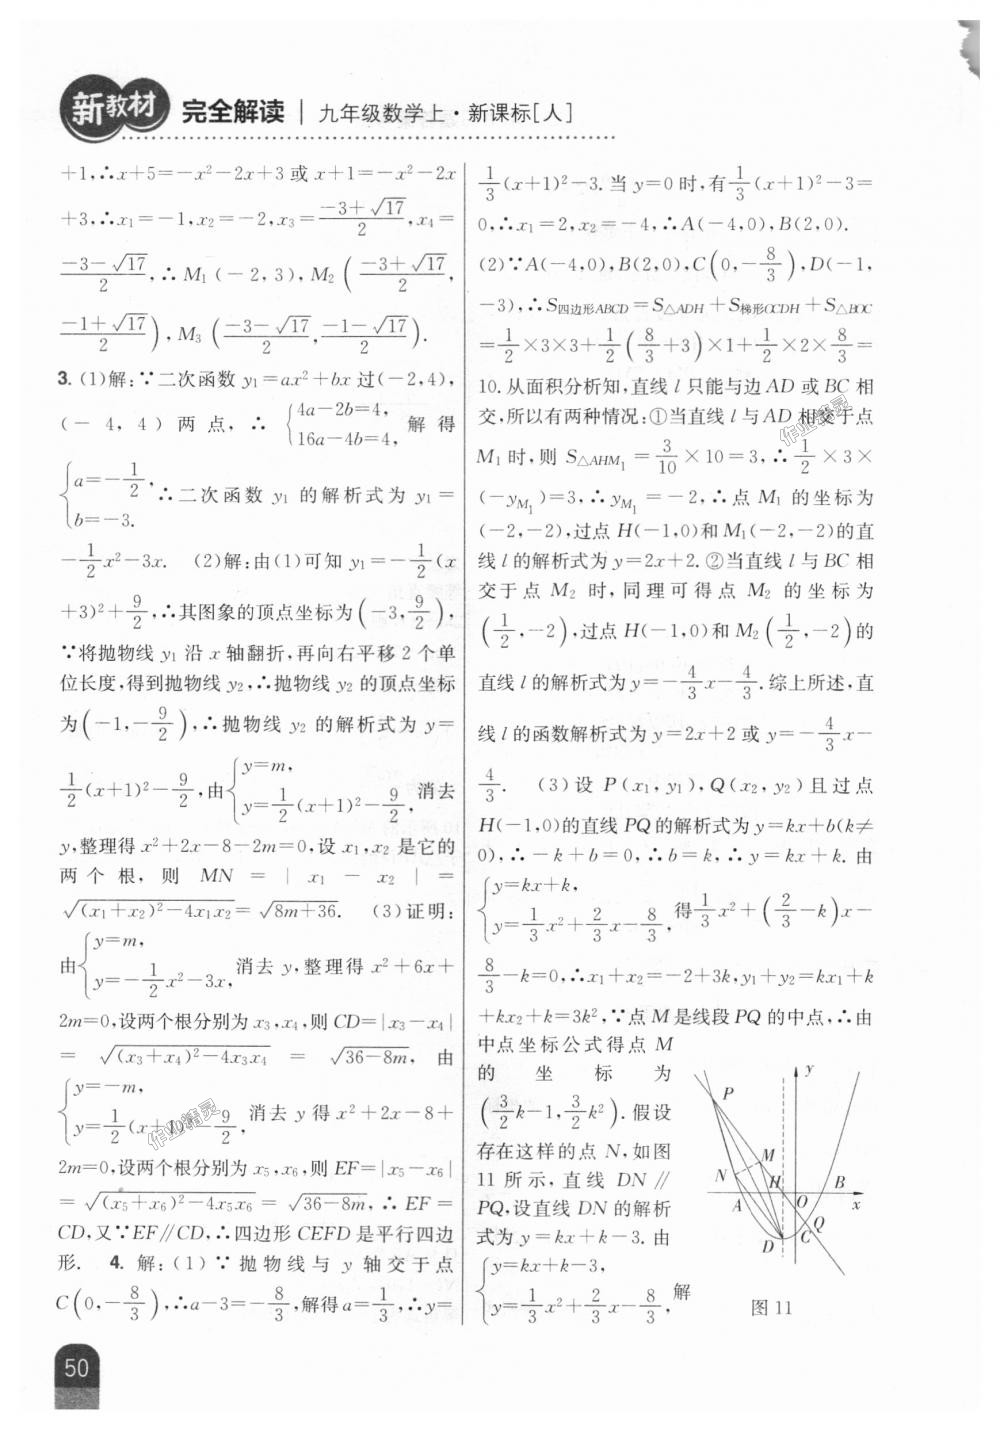 新教材 完全解读 | 九年级数学上·新课标[人]
+1,∴x+5=-x²-2x+3 或 x+1=-x²-2x
+3,∴x₁=-1,x₂=-2,x₃=(-3+√17)/2,x₄=
(-3-√17)/2,∴M₁(-2,3),M₂((-3+√17)/2,
(-1+√17)/2),M₃((-3-√17)/2,(-1-√17)/2).
3. (1)解:∵二次函数 y₁=ax²+bx 过(-2,4),
(-4,4)两点,∴{4a-2b=4, 16a-4b=4, 解得
{a=-1/2, b=-3. ∴二次函数 y₁ 的解析式为 y₁=
-1/2x²-3x. (2)解:由(1)可知 y₁=-1/2(x
+3)²+9/2,∴其图象的顶点坐标为(-3,9/2),
∵将抛物线 y₁ 沿 x 轴翻折,再向右平移 2 个单
位长度,得到抛物线 y₂,∴抛物线 y₂ 的顶点坐标
为(-1,-9/2),∴抛物线 y₂ 的解析式为 y=
1/2(x+1)²-9/2,由{y=m, y=1/2(x+1)²-9/2, 消去
y,整理得 x²+2x-8-2m=0,设 x₁,x₂ 是它的
两个根,则 MN=|x₁-x₂|=
√((x₁+x₂)²-4x₁x₂)=√(8m+36). (3)证明:
由{y=m, y=-1/2x²-3x, 消去 y,整理得 x²+6x+
2m=0,设两个根分别为 x₃,x₄,则 CD=|x₃-x₄|
=√((x₃+x₄)²-4x₃x₄)=√(36-8m),由
{y=-m, y=1/2(x+1)²-9/2, 消去 y 得 x²+2x-8+
2m=0,设两个根分别为 x₅,x₆,则 EF=|x₅-x₆|
=√((x₅+x₆)²-4x₅x₆)=√(36-8m),∴EF=
CD,又∵EF∥CD,∴四边形 CEFD 是平行四边
形. 4. 解:(1)∵抛物线与 y 轴交于点
C(0,-8/3),∴a-3=-8/3,解得 a=1/3,∴y=
1/3(x+1)²-3.当 y=0 时,有1/3(x+1)²-3=
0,∴x₁=2,x₂=-4,∴A(-4,0),B(2,0).
(2)∵A(-4,0),B(2,0),C(0,-8/3),D(-1,
-3),∴S四边形ABCD=S△ADH+S梯形OCDH+S△BOC
=1/2×3×3+1/2(8/3+3)×1+1/2×2×8/3=
10.从面积分析知,直线 l 只能与边 AD 或 BC 相
交,所以有两种情况:①当直线 l 与 AD 相交于点
M₁ 时,则 S△AHM₁=3/10×10=3,∴1/2×3×
(-yM₁)=3,∴yM₁=-2,∴点 M₁ 的坐标为
(-2,-2),过点 H(-1,0)和 M₁(-2,-2)的直
线 l 的解析式为 y=2x+2.②当直线 l 与 BC 相
交于点 M₂ 时,同理可得点 M₂ 的坐标为
(1/2,-2),过点 H(-1,0)和 M₂(1/2,-2)的
直线 l 的解析式为 y=-4/3x-4/3.综上所述,直
线 l 的函数解析式为 y=2x+2 或 y=-4/3x-
4/3. (3)设 P(x₁,y₁),Q(x₂,y₂)且过点
H(-1,0)的直线 PQ 的解析式为 y=kx+b(k≠
0),∴-k+b=0,∴b=k,∴y=kx+k.由
{y=kx+k, y=1/3x²+2/3x-8/3, 得1/3x²+(2/3-k)x-
8/3-k=0,∴x₁+x₂=-2+3k,y₁+y₂=kx₁+k
+kx₂+k=3k²,∵点 M 是线段 PQ 的中点,∴由
中点坐标公式得点 M
的坐标为
(3/2k-1,3/2k²).假设
存在这样的点 N,如图
11 所示,直线 DN∥
PQ,设直线 DN 的解析
式为 y=kx+k-3.由
{y=kx+k-3, y=1/3x²+2/3x-8/3, 解
y
P
M
N
H
B
A
O
x
Q
D
C
图 11
作业精灵
作业精灵
50